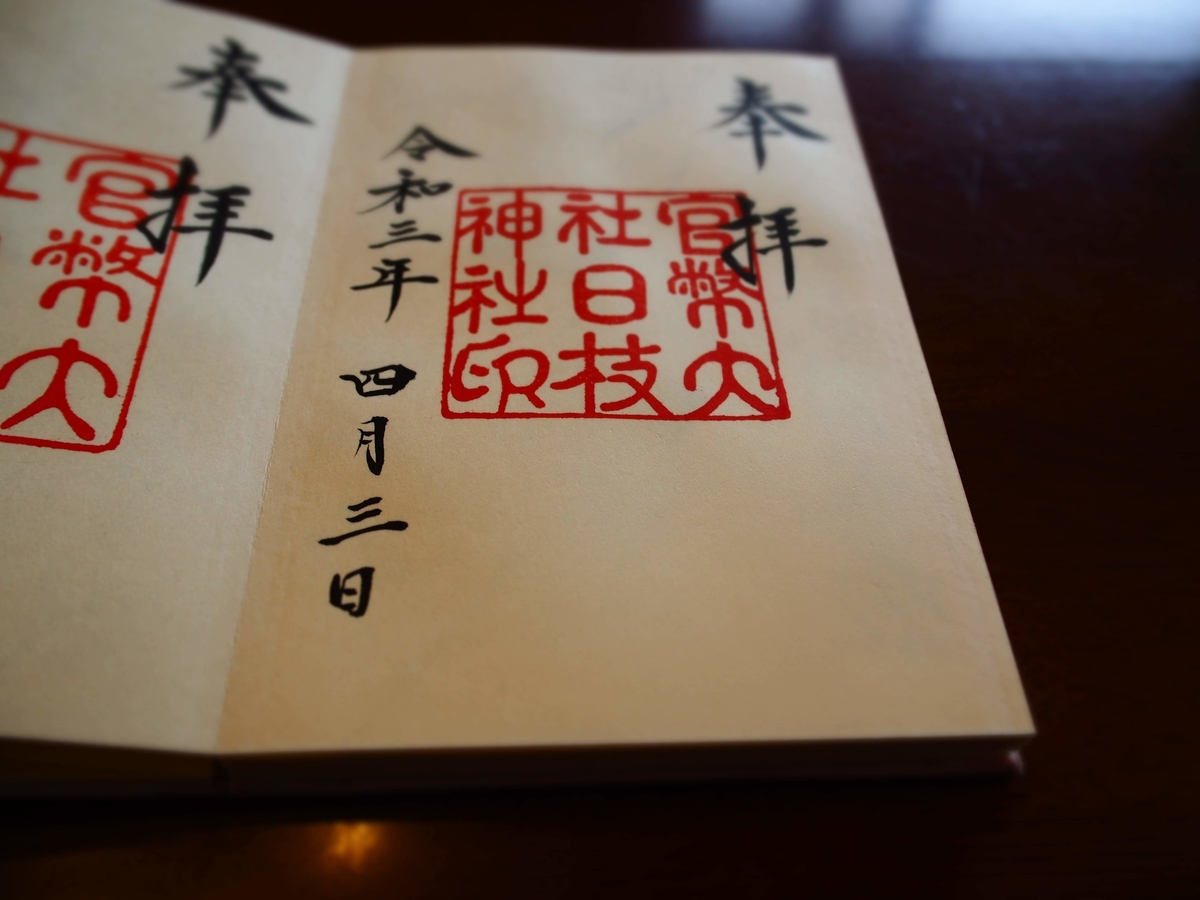 奉拝
官幣大
社日技
神社印
令和三年 四月三日
奉拝
官幣大
社